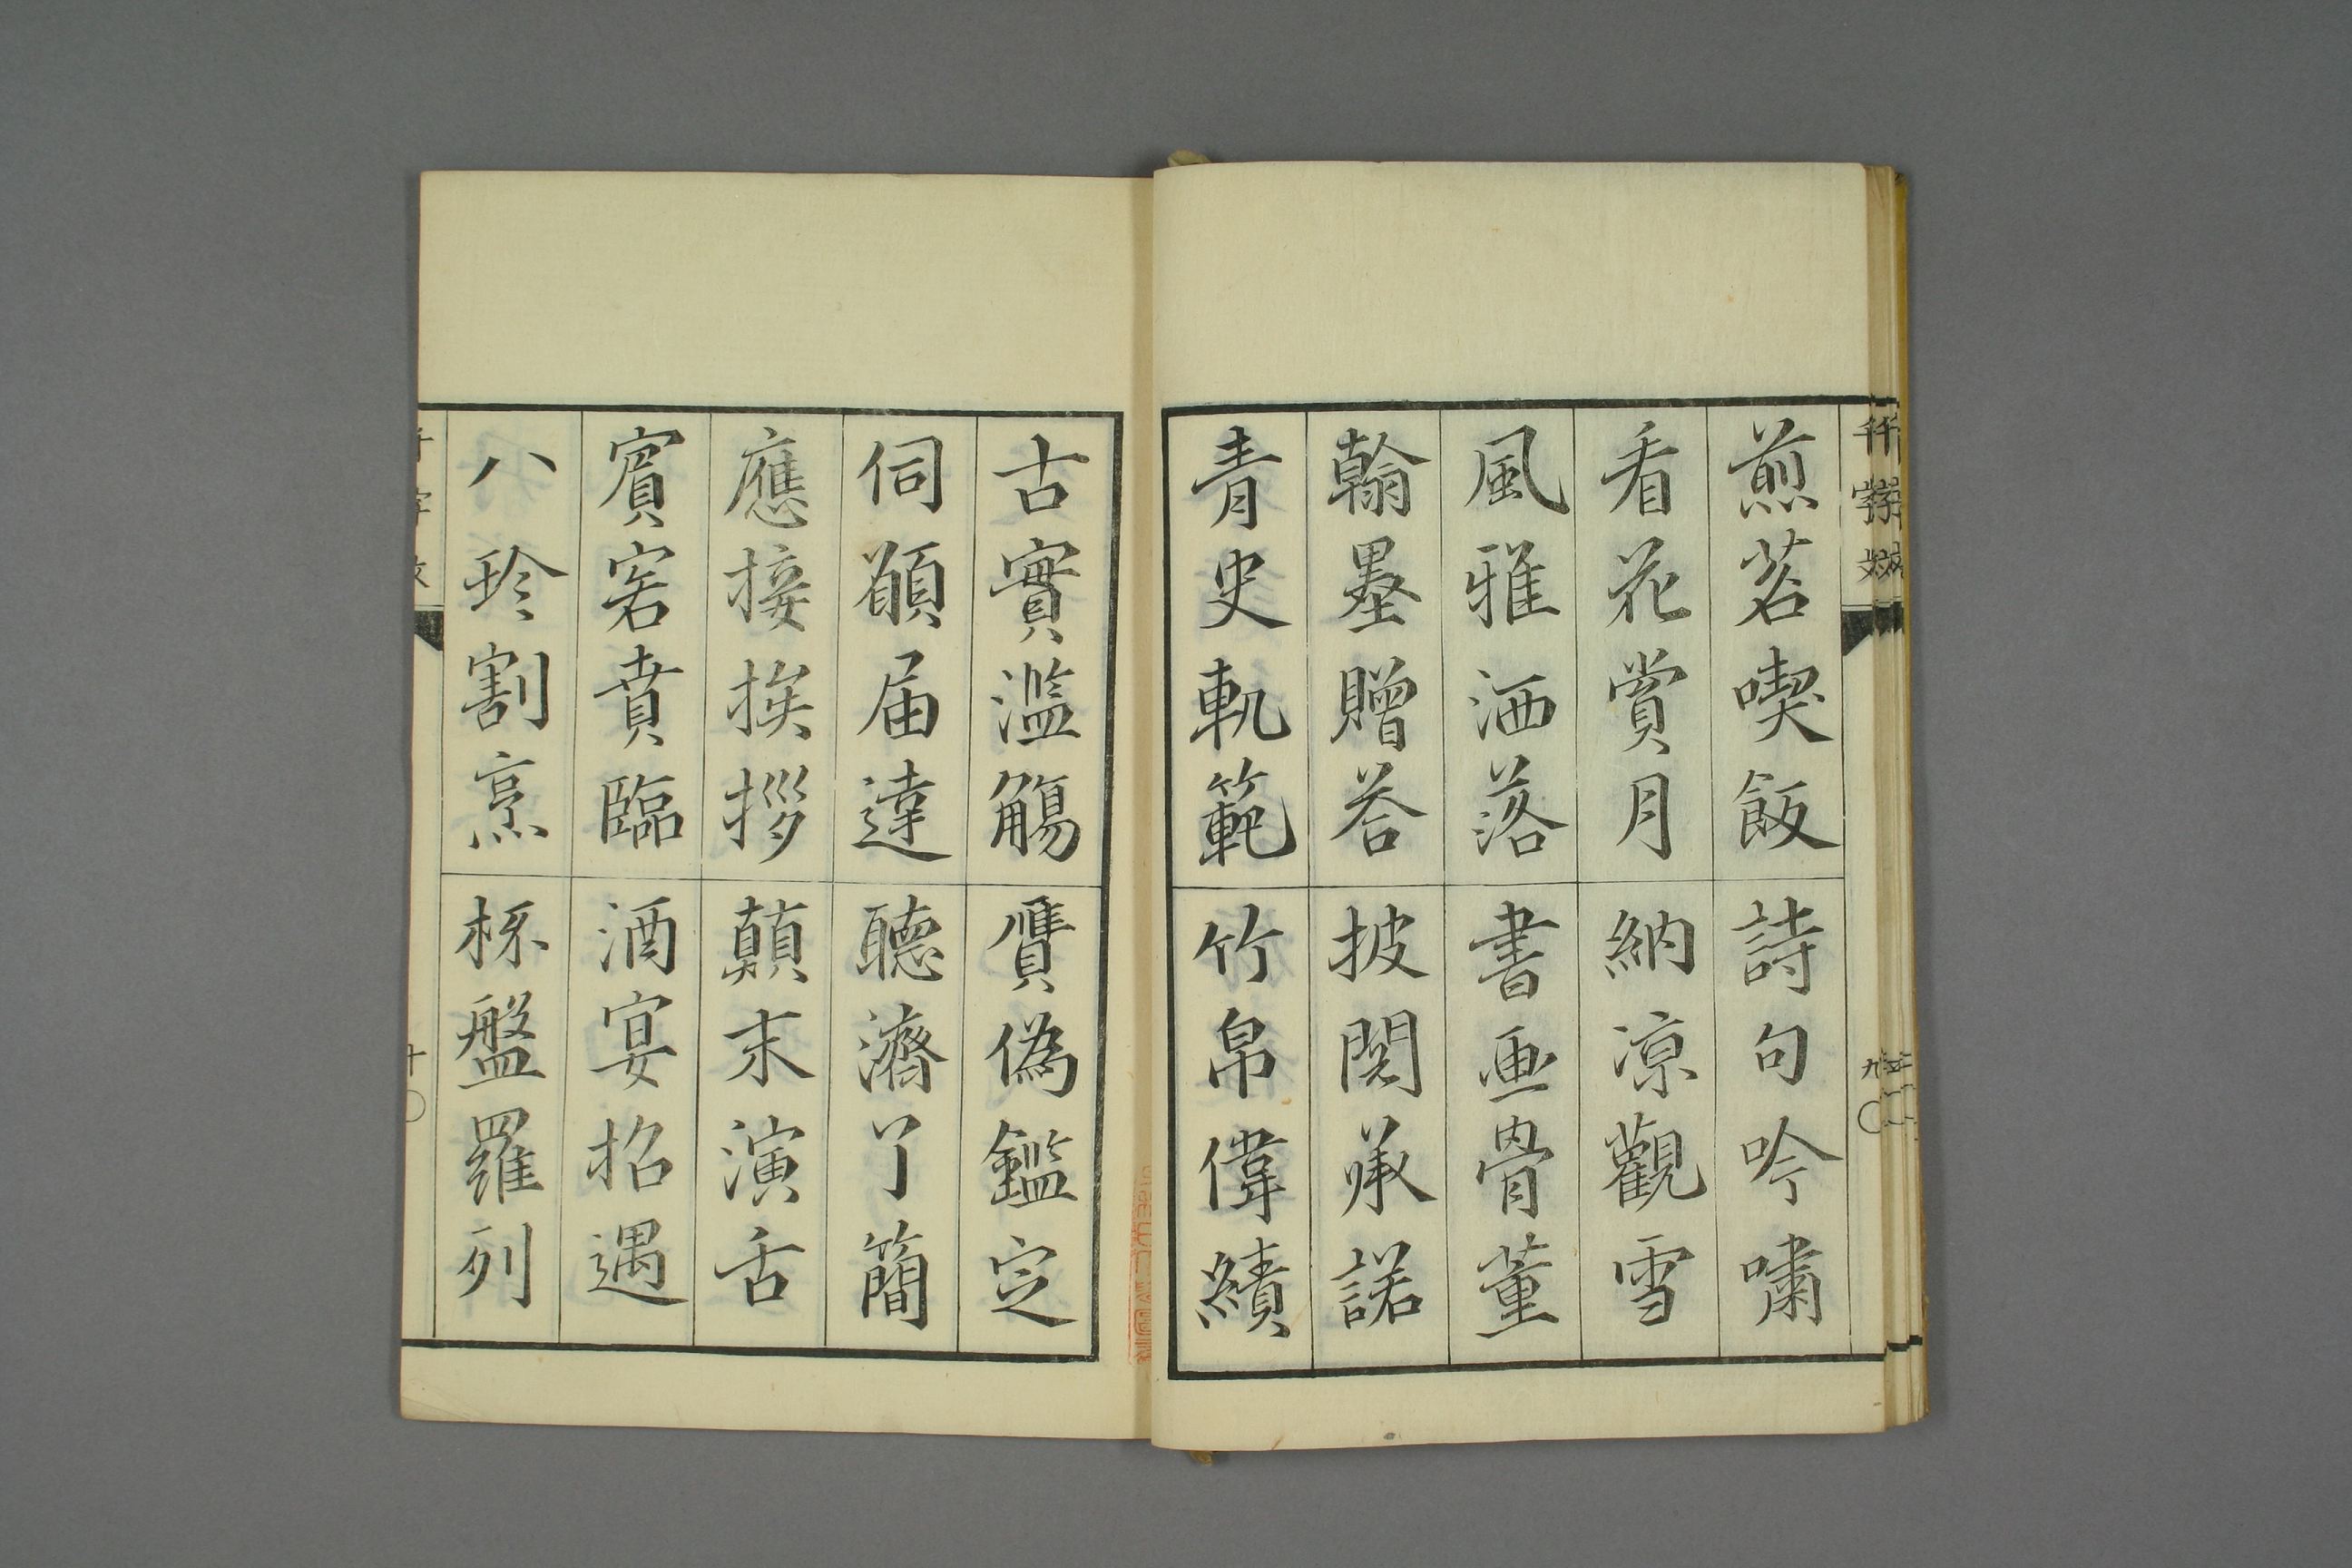 煎茗喫飯詩句吟嘯
看花賞月納凉觀雪
風雅洒落書畫骨董
翰墨贈荅披閱承諾
青史軌範竹帛偉績
古實濫觴贗偽鑑定
伺願届達聽濟了簡
應接挨拶顛末演舌
賓客賁臨酒宴招遇
八珍割烹杯盤羅列
千字文
十
九